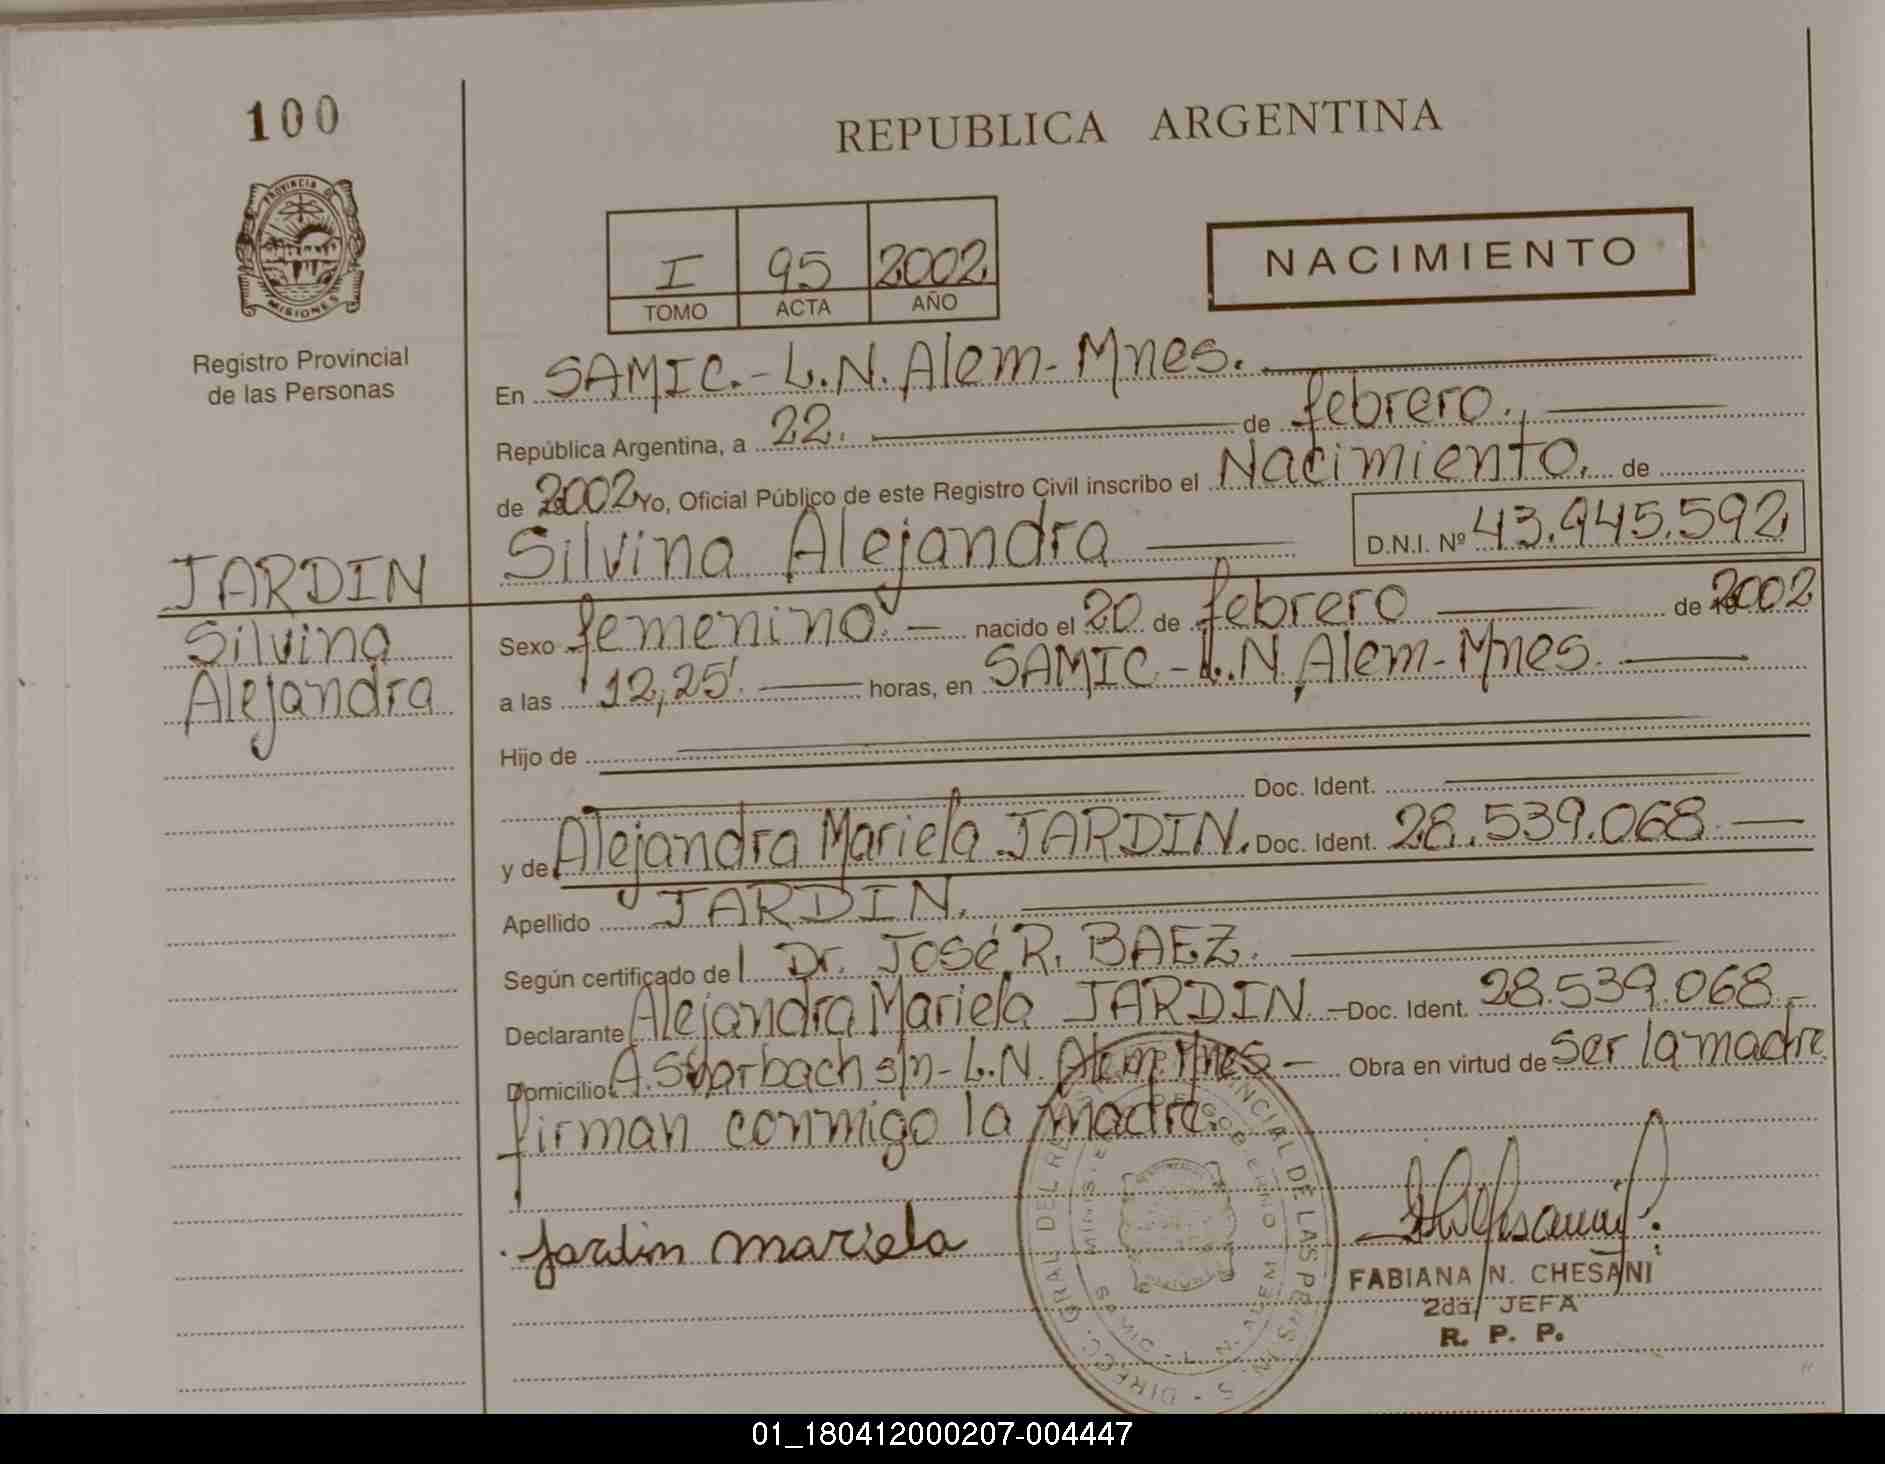 100
REPUBLICA ARGENTINA
PROVINCIA DE
MISIONES
Registro Provincial
de las Personas
I 95 2002
TOMO ACTA AÑO
NACIMIENTO
En SAMIC.- L.N. Alem- Mnes.
República Argentina, a 22. de febrero.
de 2002 Yo, Oficial Público de este Registro Civil inscribo el Nacimiento. de
Silvina Alejandra D.N.I. Nº 43.945.592
JARDIN
Silvina
Alejandra
Sexo femenino.- nacido el 20 de febrero de 2002
a las 12,25'. horas, en SAMIC.- L.N. Alem- Mnes.
Hijo de
Doc. Ident.
y de Alejandra Mariela JARDIN. Doc. Ident. 28.539.068.-
Apellido JARDIN.
Según certificado de l Dr. José R. BAEZ.
Declarante Alejandra Mariela JARDIN.- Doc. Ident. 28.539.068.-
Domicilio A. s/n- L.N. Alem Mnes- Obra en virtud de ser la madre.
firman conmigo la madre.
Jardin mariela
FABIANA N. CHESANI
2da. JEFA
R. P. P.
01_180412000207-004447